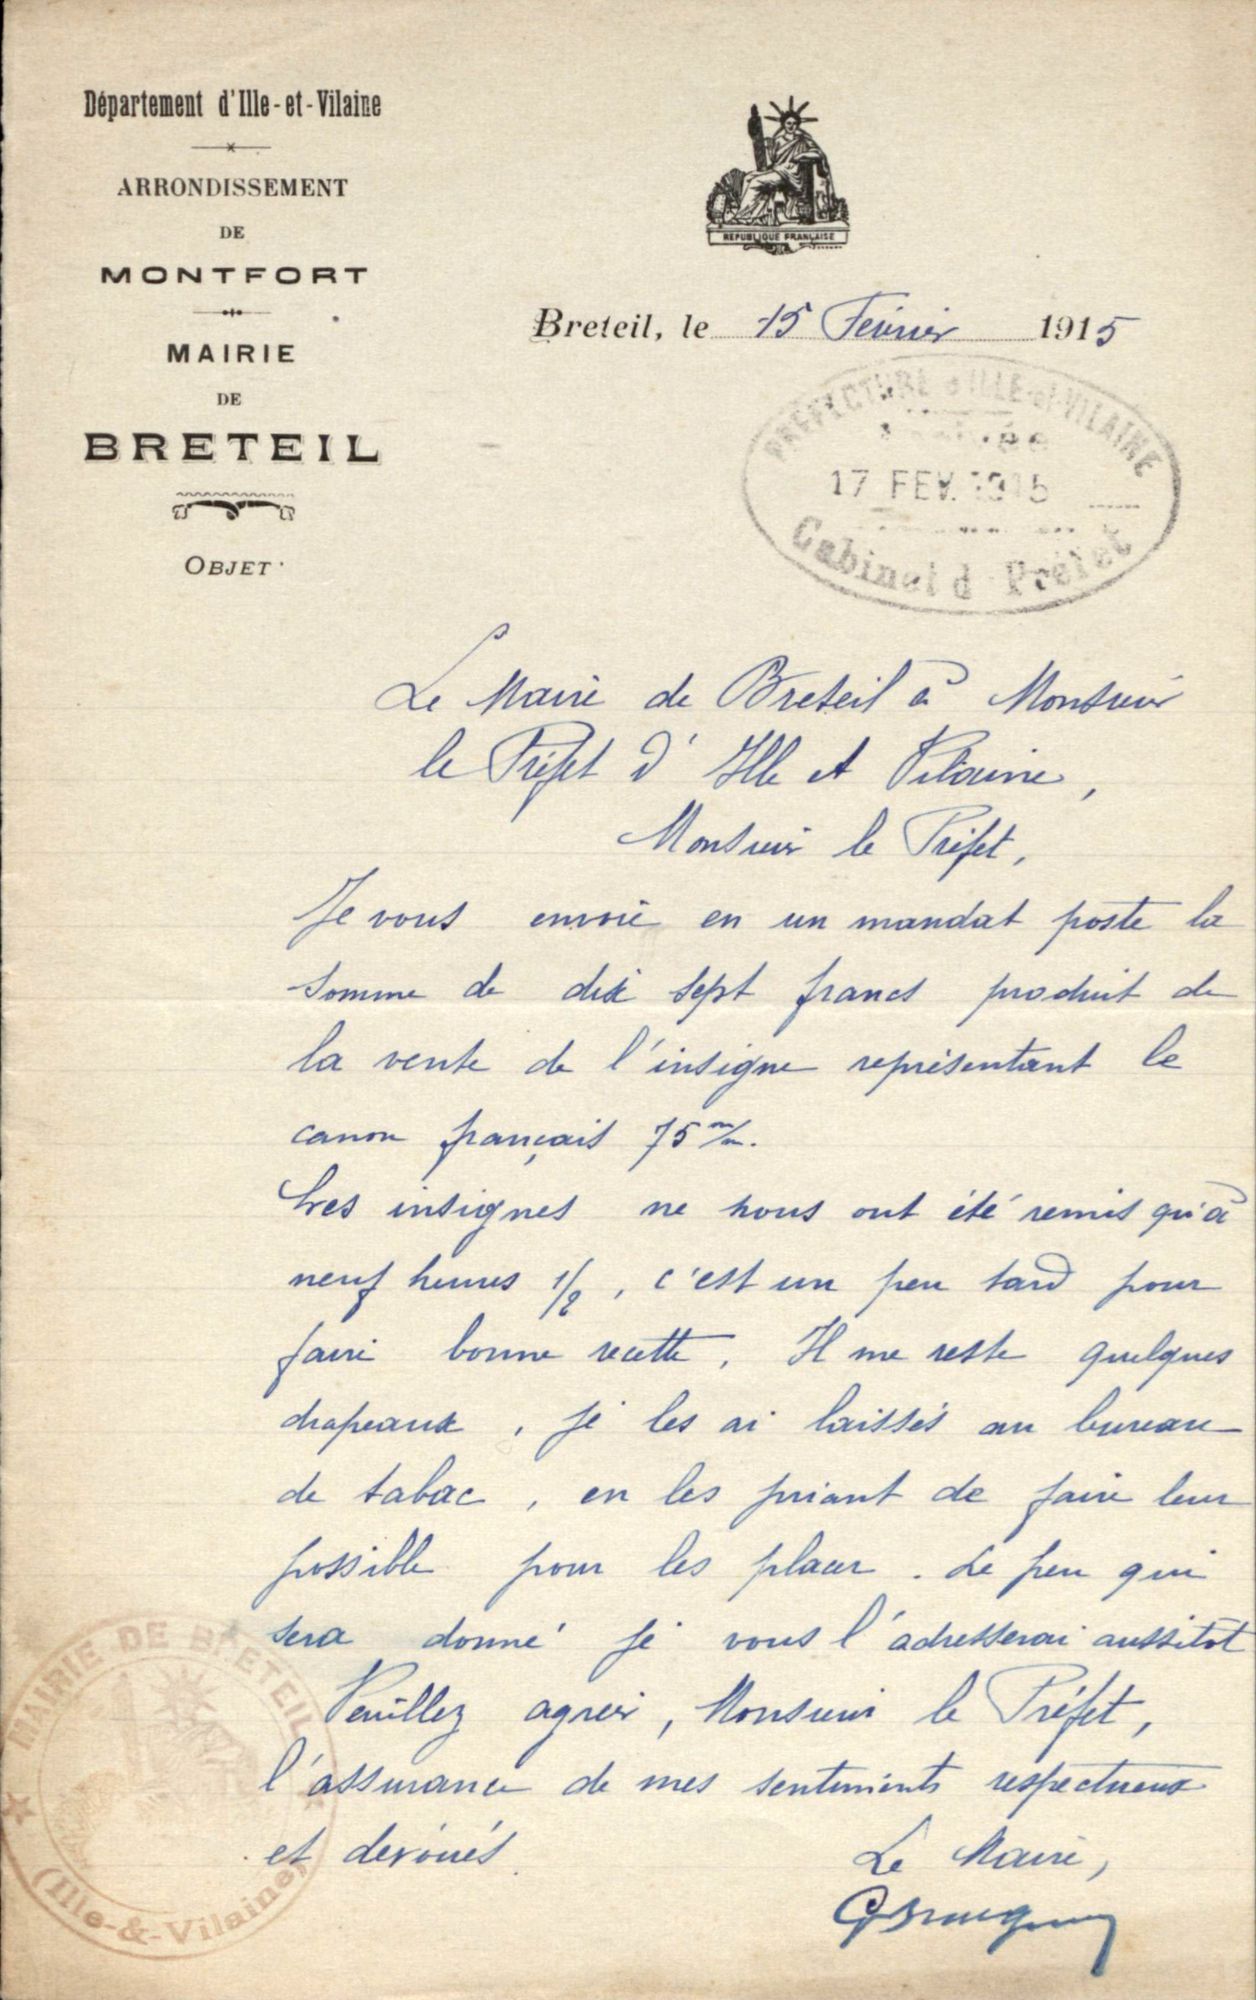 Département d'Ille-et-Vilaine
ARRONDISSEMENT
DE
MONTFORT
MAIRIE
DE
BRETEIL
OBJET
REPUBLIQUE FRANÇAISE
Breteil, le 15 Février 1915
PREFECTURE d'ILLE-et-VILAINE
Arrivée
17 FEV. 1915
Cabinet d Préfet
Le Maire de Breteil à Monsieur
le Préfet d'Ille et Vilaine,
Monsieur le Préfet,
Je vous envoie en un mandat poste la
somme de dix sept francs produit de
la vente de l'insigne représentant le
canon français 75 m/m.
Les insignes ne nous ont été remis qu'à
neuf heures 1/2, c'est un peu tard pour
faire bonne recette. Il me reste quelques
drapeaux, je les ai laissés au bureau
de tabac, en les priant de faire leur
possible pour les placer. Le peu qui
sera donné je vous l'adresserai aussitot
Veuillez agréer, Monsieur le Préfet,
l'assurance de mes sentiments respectueux
et dévoués.
Le Maire,
MAIRIE DE BRETEIL
(Ille-&-Vilaine)